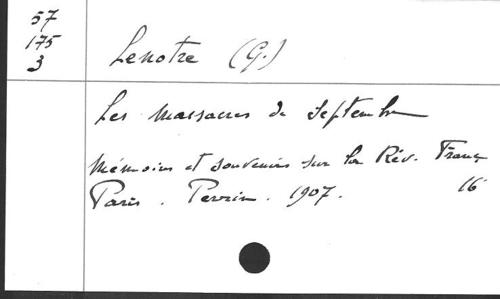 57
175
3
Lenotre (G.)
Les massacres de Septembre
Mémoires et souvenirs sur la Rév. Franç
Paris. Perrin. 1907. 16